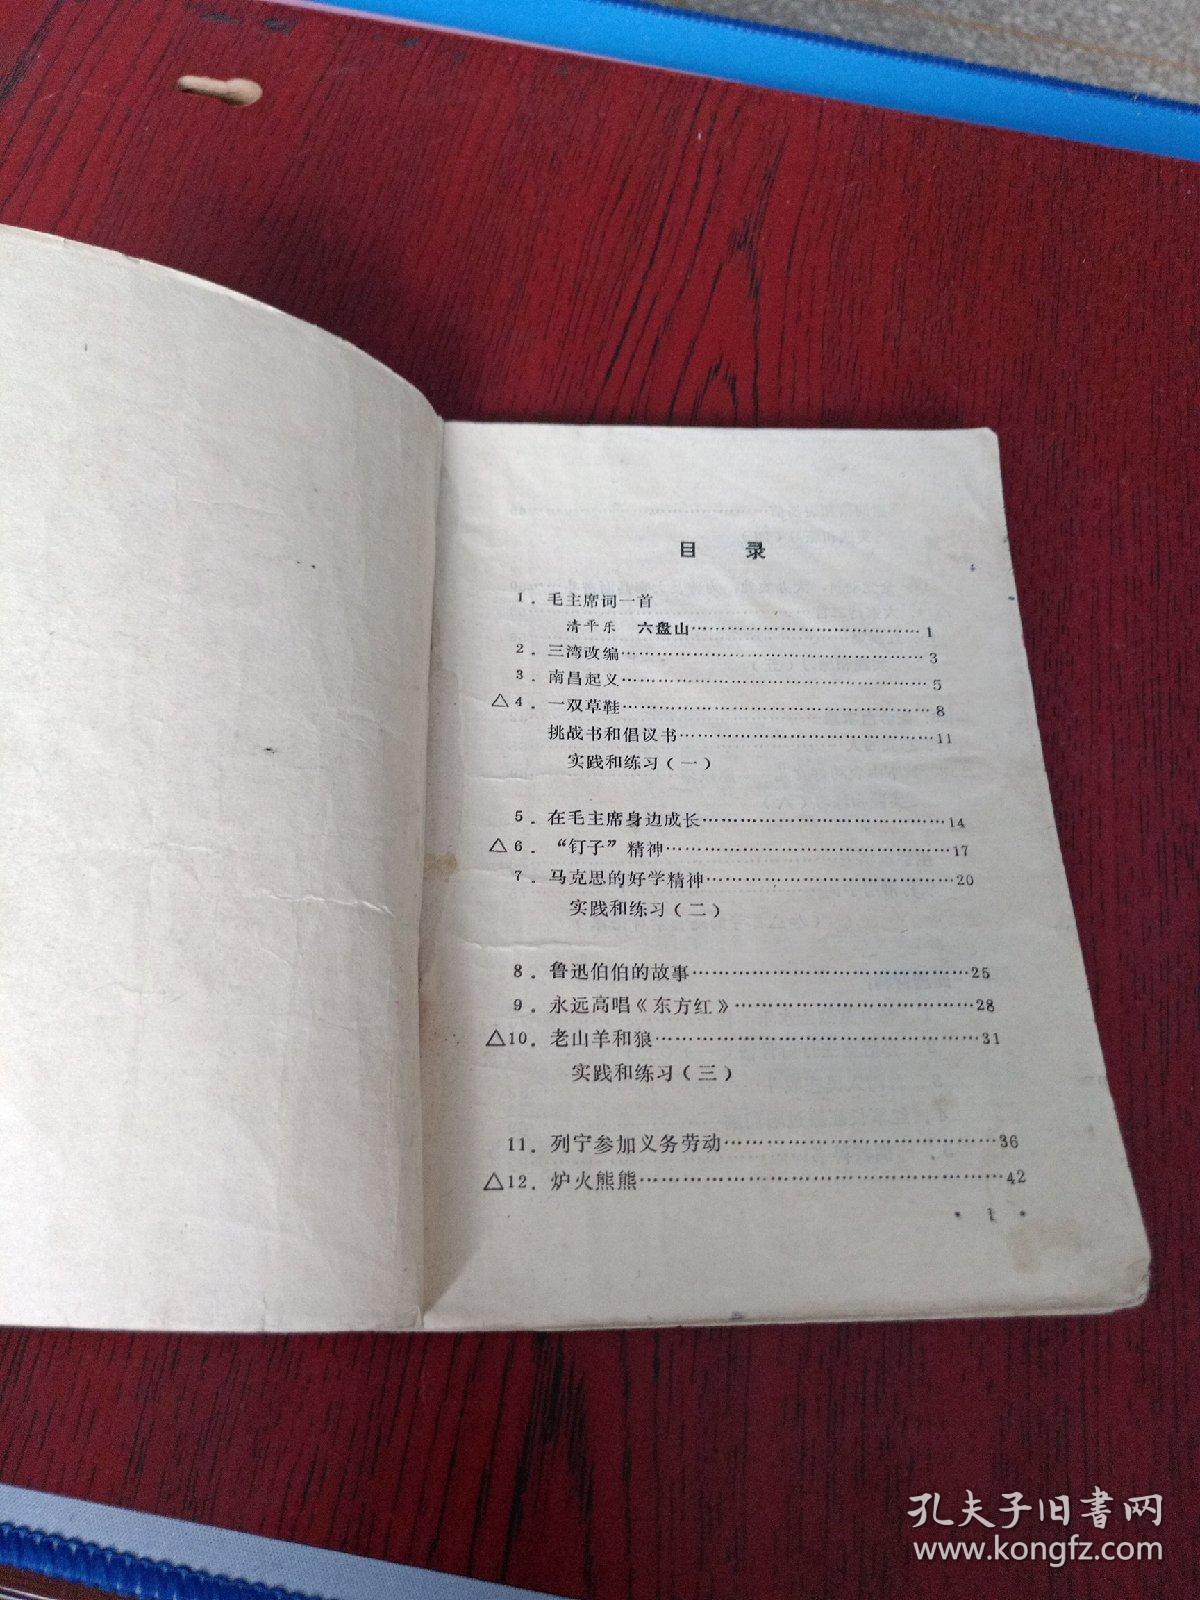 目 录
1．毛主席词一首
清平乐 六盘山……………………………1
2．三湾改编……………………………………3
3．南昌起义……………………………………5
△4．一双草鞋……………………………………8
挑战书和倡议书………………………………11
实践和练习（一）
5．在毛主席身边成长……………………………14
△6．“钉子”精神…………………………………17
7．马克思的好学精神……………………………20
实践和练习（二）
8．鲁迅伯伯的故事………………………………25
9．永远高唱《东方红》…………………………28
△10．老山羊和狼……………………………………31
实践和练习（三）
11．列宁参加义务劳动……………………………36
△12．炉火熊熊………………………………………42
• 1 •
孔夫子旧书网
www.kongfz.com